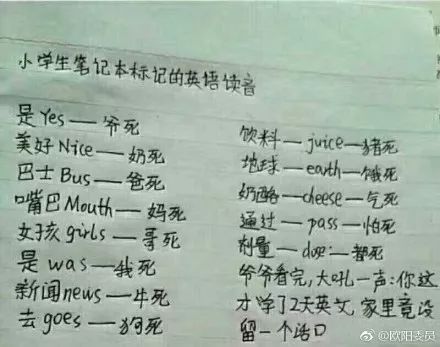 小学生笔记本标记的英语读音
是Yes——爷死
美好Nice——奶死
巴士Bus——爸死
嘴巴Mouth——妈死
女孩girls——哥死
是was——我死
新闻news——牛死
去goes——狗死
饮料—juice—猪死
地球—earth—饿死
奶酪—cheese—气死
通过—pass—怕死
剂量—dose—都死
爷爷看完,大吼一声:你这
才学了2天英文,家里竟没
留一个活口
@欧阳委员